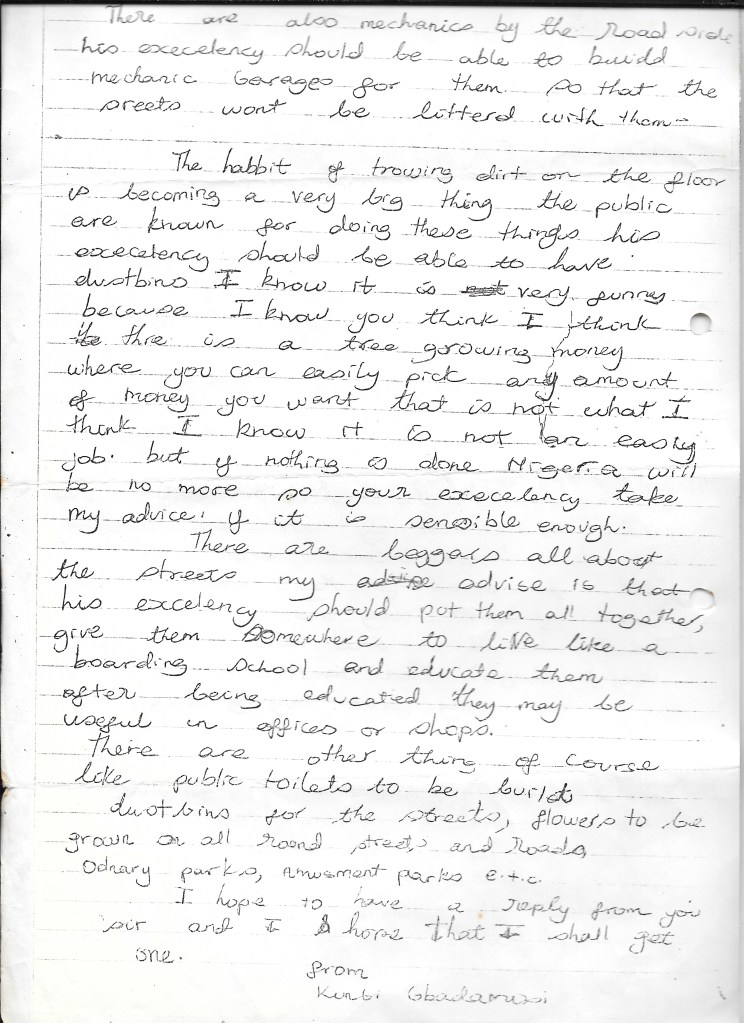 There are also mechanics by the Road side
his execelency should be able to buidd
mechanic Garages for them so that the
sreets wont be litterd with them-
The habbit of trowing dirt on the floor
is becoming a very big thing the public
are known for doing these things his
execelency should be able to have
dustbins I know it is not very funny
because I know you think I think
thre is a tree growing money
where you can easily pick any amount
of money you want that is not what I
think I know it is not an easily
job. but if nothing is done Nigeria will
be no more so your execelency take
my advice, if it is sensible enough.
There are beggars all about
the streets my advise is that
his excelency should put them all together,
give them Somewhere to live like a
boarding school and educate them
after being educated they may be
useful in offices or shops.
There are other thing of course
like public toilets to be build
dustbins for the streets, flowers to be
grown on all round streets and Roads
Odnary parks, Amusment parks e.t.c.
I hope to have a reply from you
sir and I hope that I shall get
one.
from
Kunbi Gbadamosi